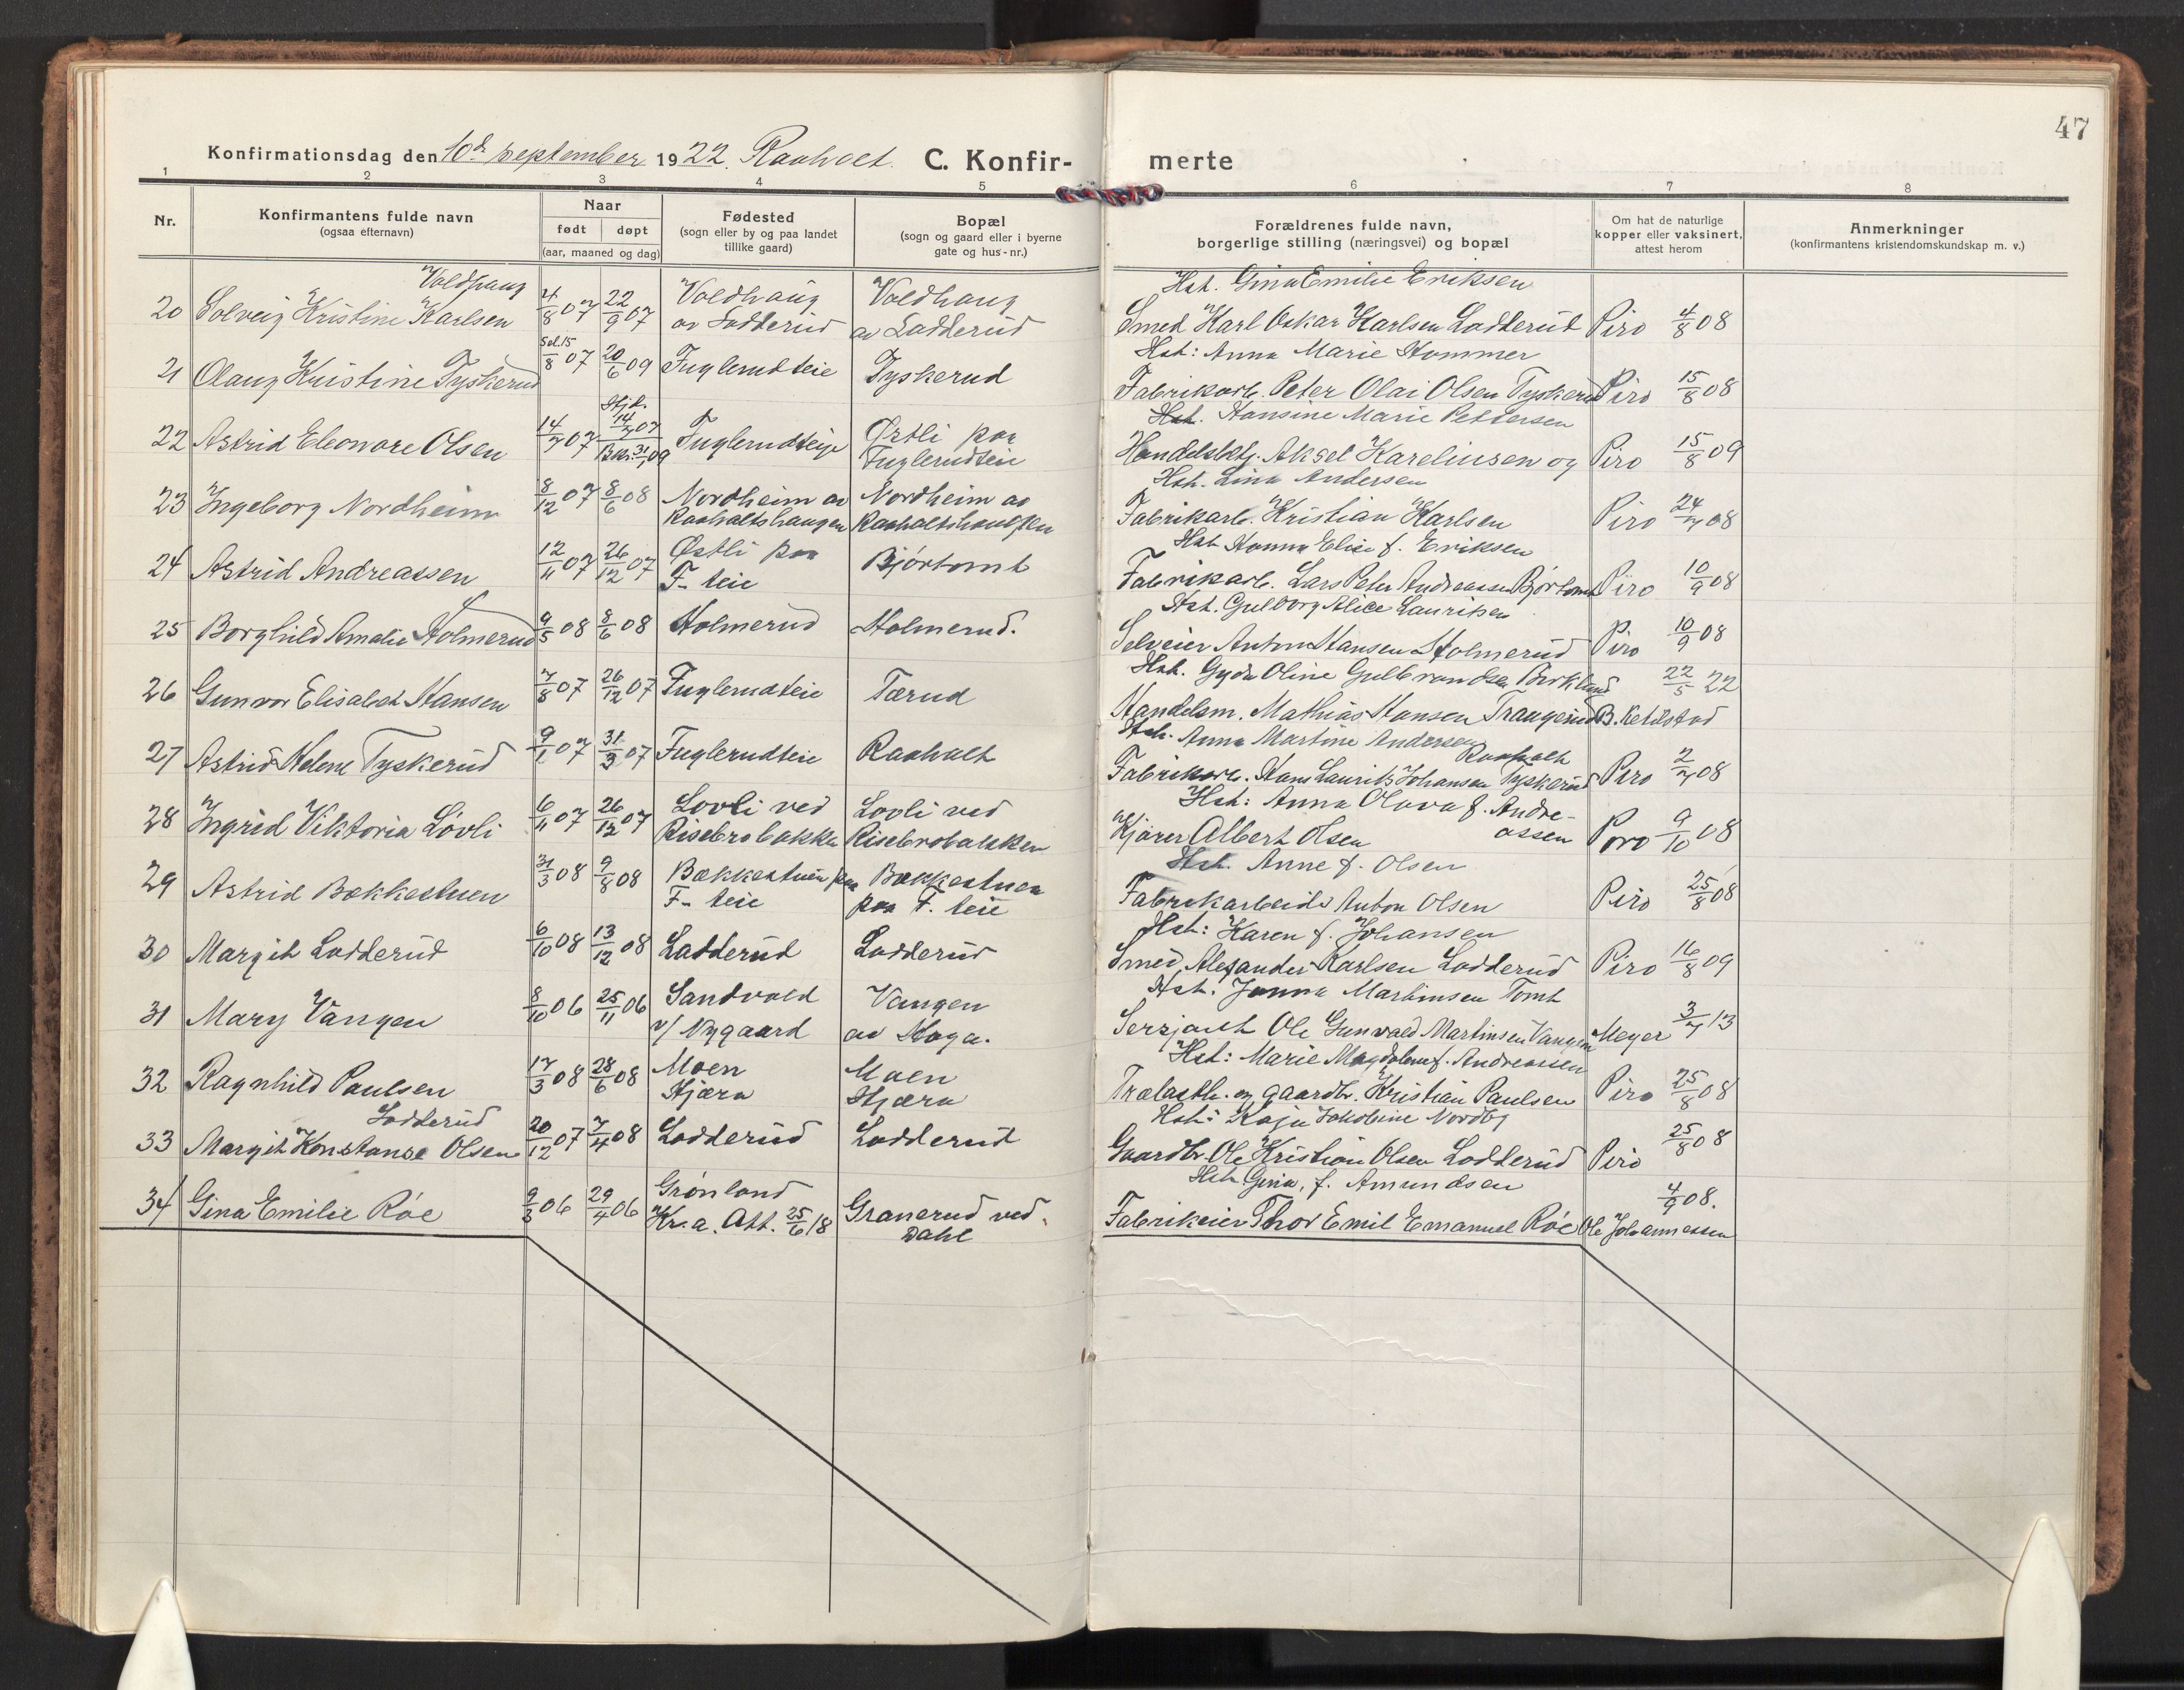 47
Konfirmationsdag den 10de september 1922. Raaholt. C. Konfir-merte
1 2 3 4 5 6 7 8
Nr.
Konfirmantens fulde navn
(ogsaa efternavn)
Naar
født døpt
(aar, maaned og dag)
Fødested
(sogn eller by og paa landet
tillike gaard)
Bopæl
(sogn og gaard eller i byerne
gate og hus-nr.)
Forældrenes fulde navn,
borgerlige stilling (næringsvei) og bopæl
Om hat de naturlige
kopper eller vaksinert,
attest herom
Anmerkninger
(konfirmantens kristendomskundskap m. v.)
Voldhaug Hst. Gina Emilie Eriksen
20 Solveig Kristine Karlsen 4/8 07 22/9 07 Voldhaug av Ladderud Voldhaug av Ladderud Smed Karl Oskar Karlsen Ladderud Piro 4/8 08
Hst: Anna Marie Hammer
21 Olaug Kristine Tyskerud 15/8 07 20/6 09 Fuglerudteie Tyskerud Fabrikarb. Peter Olai Olsen Tyskerud Piro 15/8 08
Hst. Hansine Marie Pettersen
22 Astrid Eleonore Olsen 14/7 07 Hjd. 14/7 07 Bkr. 31/1 09 Fuglerudteije Østli paa Fuglerudteie Handelsbetj. Aksel Kareliusen og Piro 15/8 09
Hst. Lina Andersen
23 Ingeborg Nordheim 8/12 07 8/6 08 Nordheim av Raaholtshaugen Nordheim av Raaholtshaugen Fabrikarb. Kristian Karlsen Piro 24/7 08
Hst. Hanna Elise f. Eriksen
24 Astrid Andreassen 12/11 07 26/12 07 Østli paa F- teie Bjørtomt Fabrikarb. Lars Peter Andreassen Bjørtomt Piro 10/9 08
Hst. Gulborg Alice Lauritsen
25 Borghild Amalie Holmerud 9/5 08 8/6 08 Holmerud Holmerud. Selveier Anton Hansen Holmerud Piro 10/9 08
Hst. Gyda Oline Gulbrandsen Birkland
26 Gunvor Elisabet Hansen 7/8 07 26/12 07 Fuglerudteie Tærud Handelsm. Mathias Hansen Traugerud 22/5 22 B. Ketilstad
Hst. Anna Martine Andersen Raaholt
27 Astrid Helene Tyskerud 9/1 07 31/3 07 Fuglerudteie Raaholt Fabrikarb. Hans Laurits Johansen Tyskerud Piro 2/7 08
Hst: Anna Olava f. Andre-assen
28 Ingrid Viktoria Løvli 6/11 07 26/12 07 Lovli ved Risebrobakken Lovli ved Risebrobakken Kjører Albert Olsen Poro 9/10 08
Hst. Anne f. Olsen
29 Astrid Bækkestuen 31/3 08 9/8 08 Bækkestuen paa F- teie Bækkestuen paa F. teie Fabrikarbeider Anton Olsen Piro 25/8 08
Hst: Karen f. Johansen
30 Margit Ladderud 6/10 08 13/12 08 Ladderud Ladderud Smed Alexander Karlsen Ladderud Piro 16/8 09
Hst. Janna Martinsen Tomt
31 Mary Vangen 8/10 06 25/11 06 Sandvold v/ Nygaard Vangen av Haga. Sersjant Ole Gunvald Martinsen Vangen Meyer 3/7 13
Hst: Marie Magdalene f. Andreassen
32 Ragnhild Paulsen 17/3 08 28/6 08 Moen Hjæra Moen Hjæra Trælasth. og gaardbr. Kristian Paulsen Piro 25/8 08
Ladderud Hst: Kaja Jakobine Nordby
33 Margit Konstanse Olsen 20/12 07 7/4 08 Ladderud Ladderud Gaardbr. Ole Kristian Olsen Ladderud Piro 25/8 08
Hst Gina, f. Amundsen
34 Gina Emilie Róe 9/3 06 29/4 06 Grønland Kr.a. Att. 25/6 18 Granerud ved Dahl Fabrikeier Thor Emil Emanuel Róe 4/9 08. Ole Johannessen